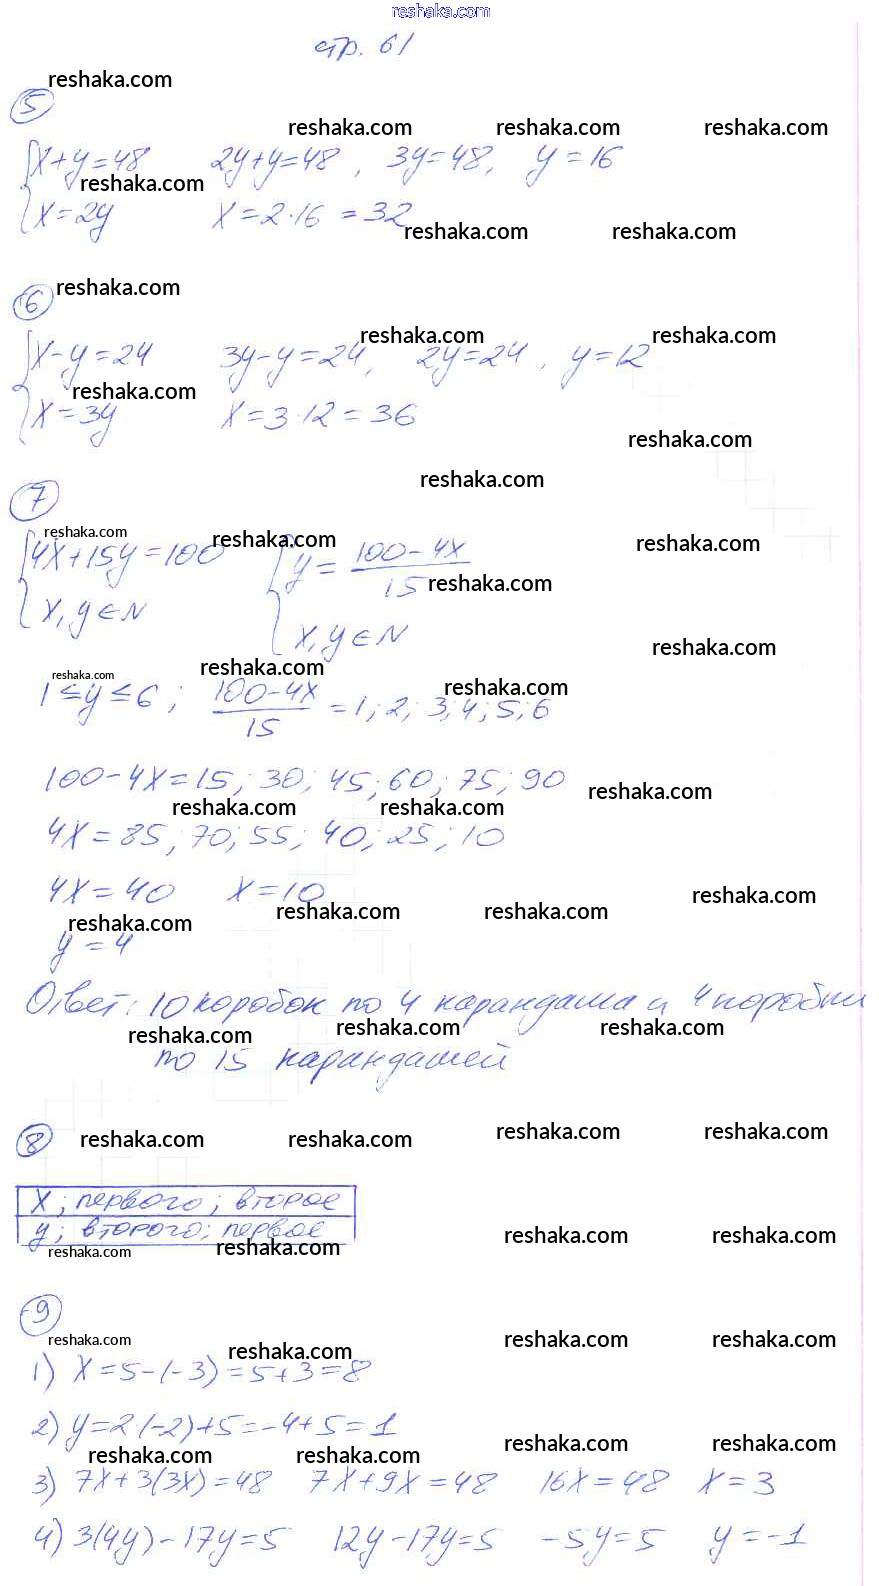 reshaka.com
стр. 61
reshaka.com
5
reshaka.com reshaka.com reshaka.com
x+y=48 2y+y=48, 3y=48, y=16
reshaka.com
x=2y x=2·16=32
reshaka.com reshaka.com
6 reshaka.com
reshaka.com reshaka.com
x-y=24 3y-y=24, 2y=24, y=12
reshaka.com
x=3y x=3·12=36
reshaka.com
reshaka.com
7
reshaka.com reshaka.com reshaka.com
4x+15y=100 y=(100-4x)/15
reshaka.com
x,y∈N x,y∈N
reshaka.com
reshaka.com reshaka.com reshaka.com
1≤y≤6; (100-4x)/15=1;2;3;4;5;6
100-4x=15;30;45;60;75;90
reshaka.com
reshaka.com reshaka.com
4x=85;70;55;40;25;10
4x=40 x=10
reshaka.com
reshaka.com reshaka.com reshaka.com
y=4
Ответ: 10 коробок по 4 карандаша и 4 коробки
reshaka.com reshaka.com reshaka.com
по 15 карандашей
8 reshaka.com reshaka.com reshaka.com reshaka.com
x; первого; второе
y; второго; первое
reshaka.com reshaka.com reshaka.com reshaka.com
9
reshaka.com reshaka.com reshaka.com reshaka.com
1) x=5-(-3)=5+3=8
2) y=2·(-2)+5=-4+5=1
reshaka.com reshaka.com reshaka.com reshaka.com
3) 7x+3(3x)=48 7x+9x=48 16x=48 x=3
4) 3(4y)-17y=5 12y-17y=5 -5y=5 y=-1